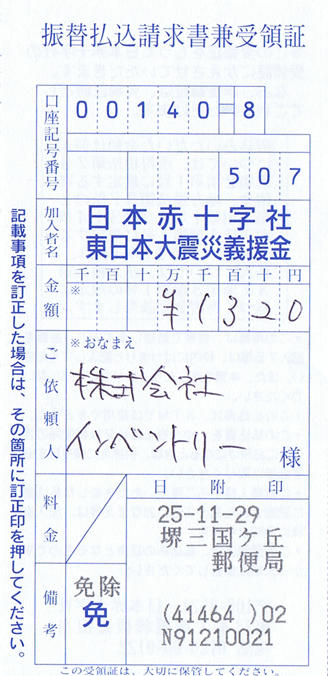 振替払込請求書兼受領証
口座記号番号
00140-8
507
加入者名
日本赤十字社
東日本大震災義援金
金額
千百十万千百十円
※
¥1320
ご依頼人
※おなまえ
株式会社
インベントリ
様
料金
日附印
25-11-29
堺三国ケ丘
郵便局
(41464 )02
N91210021
備考
免除
免
記載事項を訂正した場合は、その箇所に訂正印を押してください。
この受領証は、大切に保管してください。